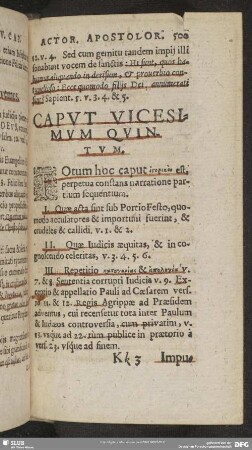 ACTOR. APOSTOLOR. 500
11. v. 4. Sed cum gemitu tandem impij illi
sonabunt vocem de sanctis: Hi sunt, quos ha-
buimus aliquando in derisum, & proverbia con-
Ecce quomodo filijs Dei annumerati
Sapient. 5. v. 3. 4. & 5.
CAPVT VICESI-
MVM QVIN-
TVM.
TOtum hoc caput est,
perpetua constans narratione par-
tium sequentium.
I. Quæ acta sint sub Portio Festo, quo-
modo accusatores & importuni fuerint, &
crudeles & callidi, v. 1. & 2.
II. Quæ Iudicis æquitas, & in co-
gnoscendo celeritas, v. 3. 4. 5. 6.
III. Repetitio v.
7. & 8. Sententia corrupti Iudicis v. 9. Ex-
ceptio & appellatio Pauli ad Cæsarem vers.
10. 11. & 12. Regis Agrippæ ad Præsidem
adventus, cui recensetur tota inter Paulum
& Iudæos controversia, cum privatim, v.
13. usque ad 22. tum publice in prætorio à
vers. 23. usque ad finem.
Kk 3 Impu-
SLUB